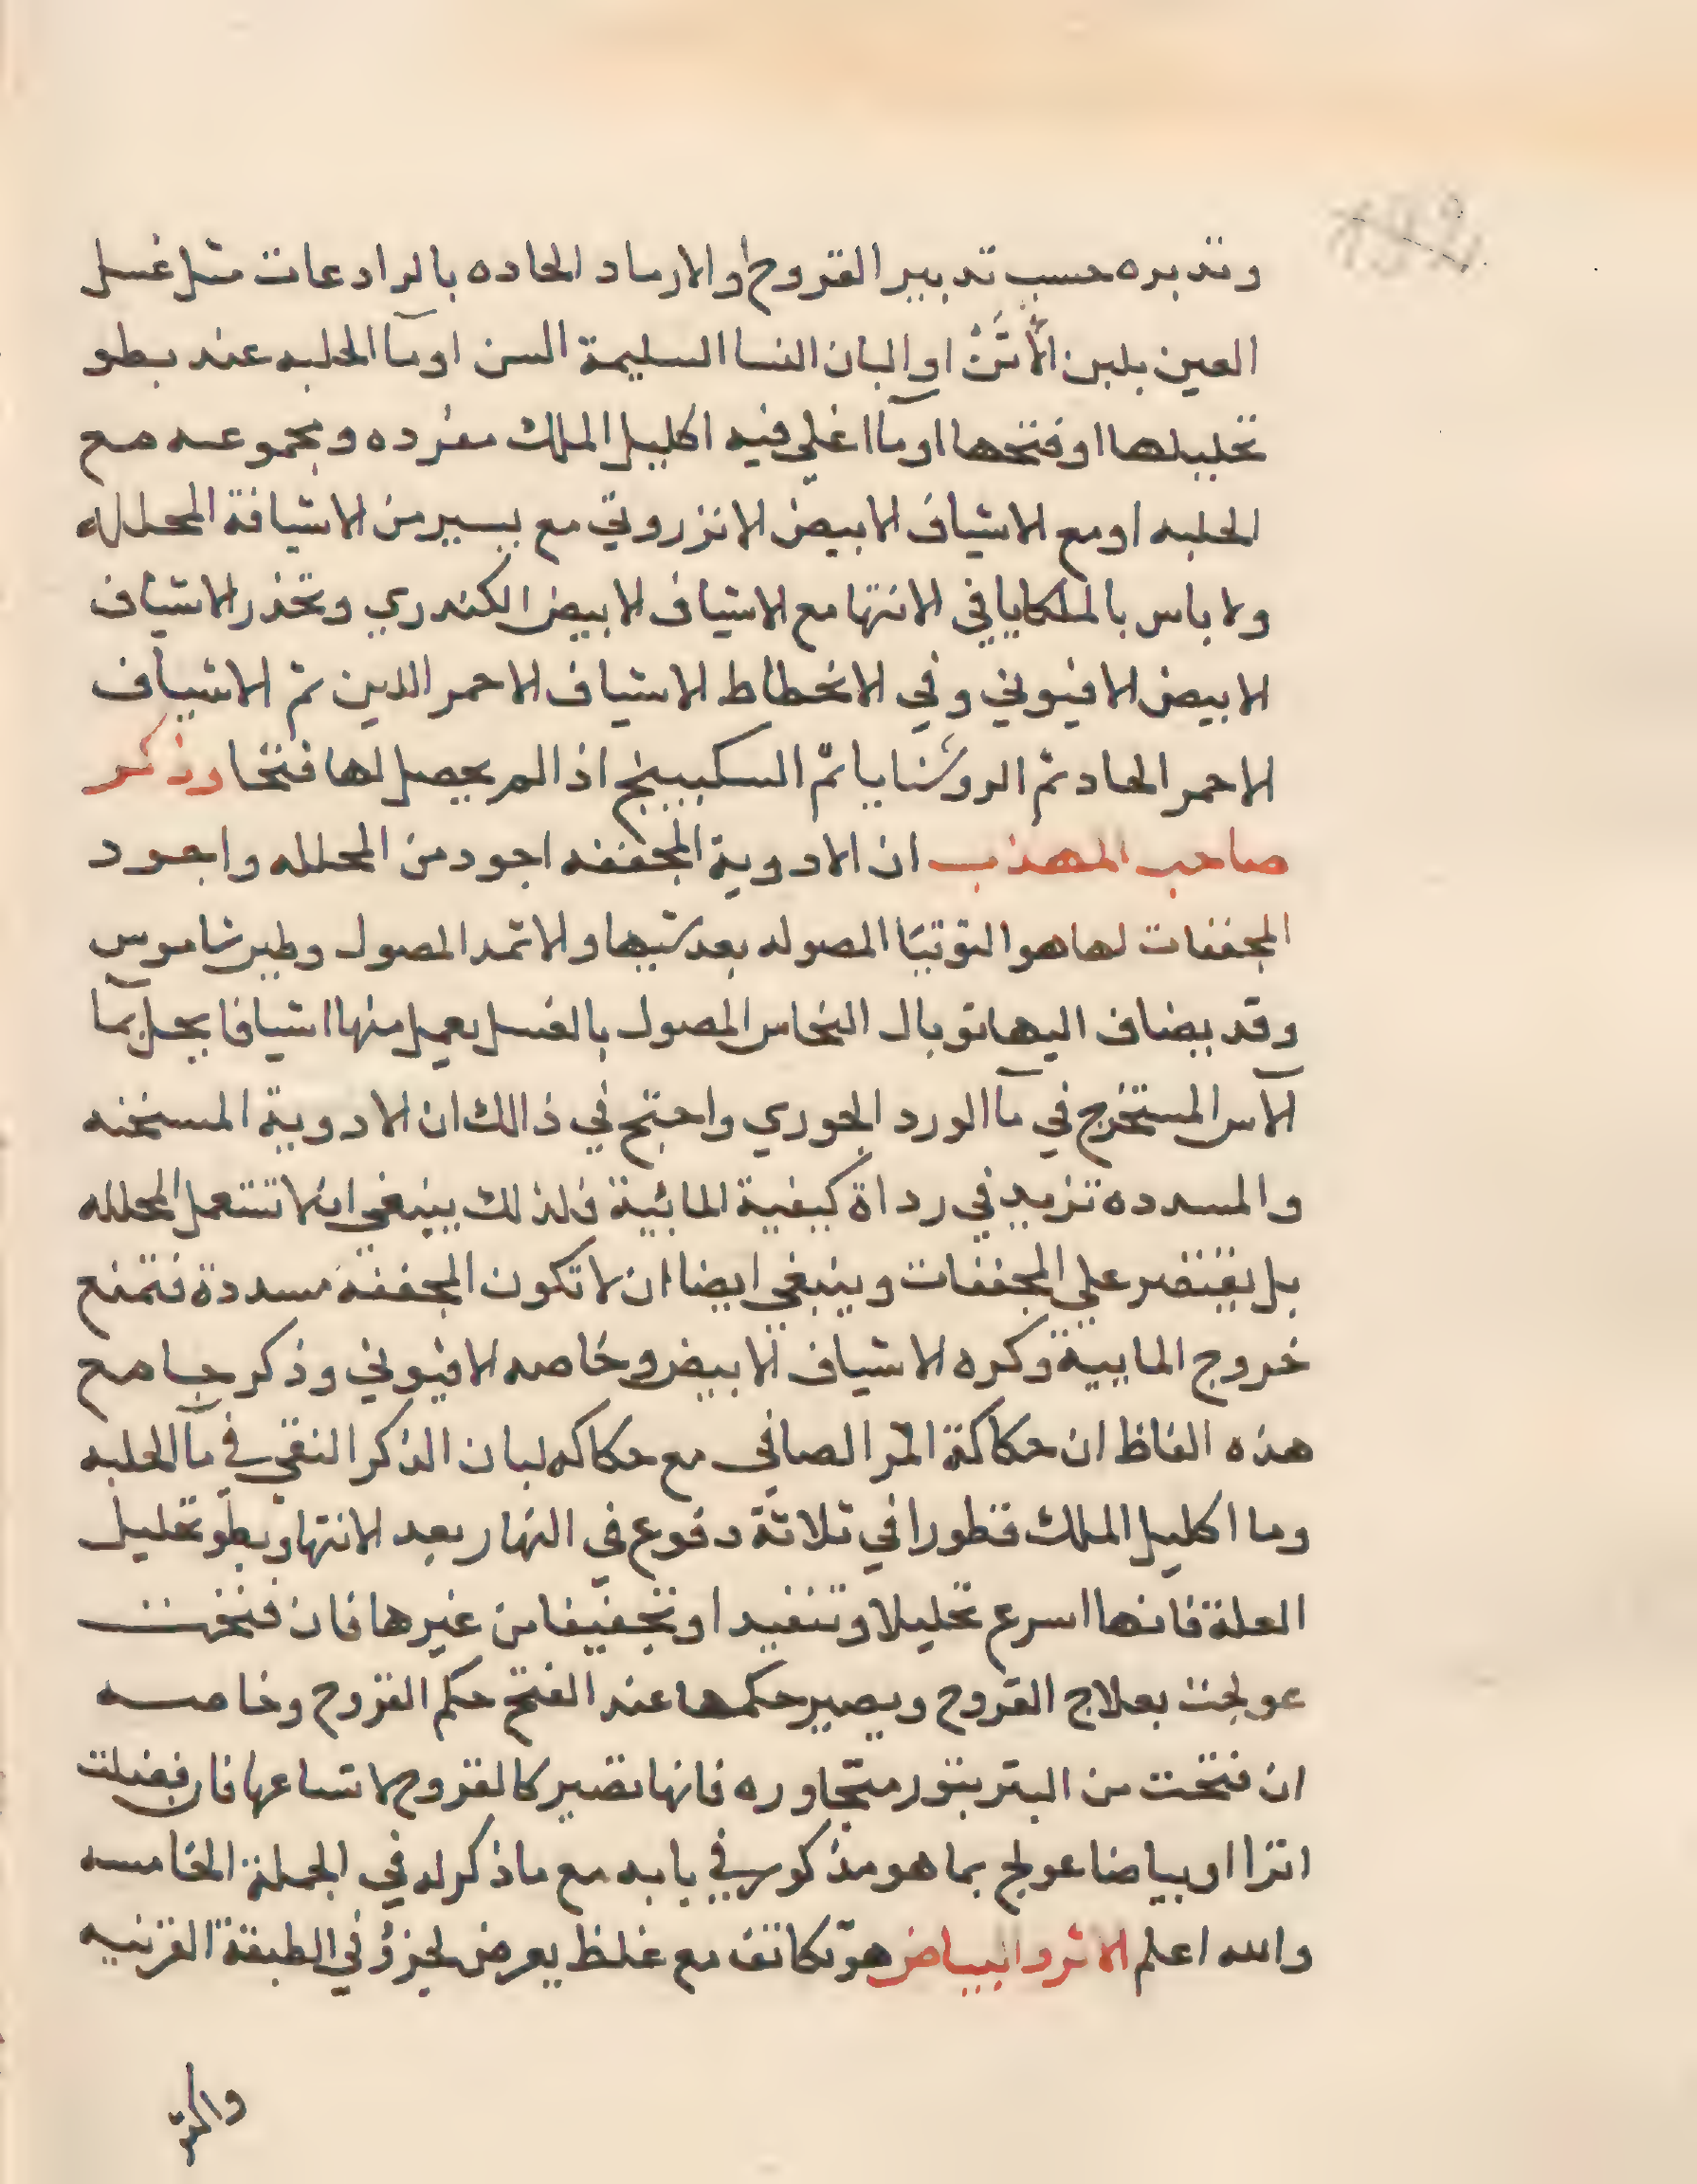 وتدبره حسب تدبير القروح والارماد الحاده بالرادعات مثل غسل
العين بلبن الأتن او البان النسا السليمة السن او مآ الحلبه عند بطو
تحليلها او فتحها او مآ اغلي فيه اكليل الملك مفرده ومجموعه مع
الحلبه او مع الاشياف الابيض الانزروتي مع يسير من الاشيافة المحلله
ولا باس بالملكايا في الانتها مع الاشياف الابيض الكندري وتحذر الاشياف
الابيض الافيوني وفي الانحطاط الاشياف الاحمر اللين ثم الاشياف
الاحمر الحاد ثم الروشنايا ثم السكبينج اذا لم يحصل لها فتحا وذكر
صاحب المهذب ان الادوية المجففه اجود من المحلله واجود
المجففات لها هو التوتيا المصوله بعد شيها والاثمد المصول وطين شاموس
وقد يضاف اليها توبال النحاس المصول بالغسل يعمل منها اشيافا يحل بمآ
الآس المستخرج في مآ الورد الجوري واحتج في ذالك ان الادوية المسخنه
والمسدده تزيد في رداة كيفية المائية فلذلك ينبغي ان لا تستعمل المحلله
بل يقتصر علي المجففات وينبغي ايضا ان لا تكون المجففة مسددة فتمنع
خروج المايية وكره الاشياف الابيض وخاصه الافيوني وذكر جامع
هذه الفاظ ان حكاكة المر الصافي مع حكاكه لبان الذكر النقي في مآ الحلبه
وما اكليل الملك قطورا في ثلاثة دفوع في النهار بعد الانتها وبطو تحليل
العلة فانها اسرع تحليلا وتنفيدا وتجفيفا من غيرها فان فتحت
عولجت بعلاج القروح ويصير حكمها عند الفتح حكم القروح وخاصه
ان فتحت من البثر بثور متجاوره فانها تصير كالقروح لاتساعها فان فضلت
اثرا او بياضا عولج بما هو مذكور في بابه مع ما ذكر له في الجملة الخامسه
والله اعلم الاثر والبياض هو تكاثف مع غلظ يعرض لجزؤ في الطبقة القرنيه